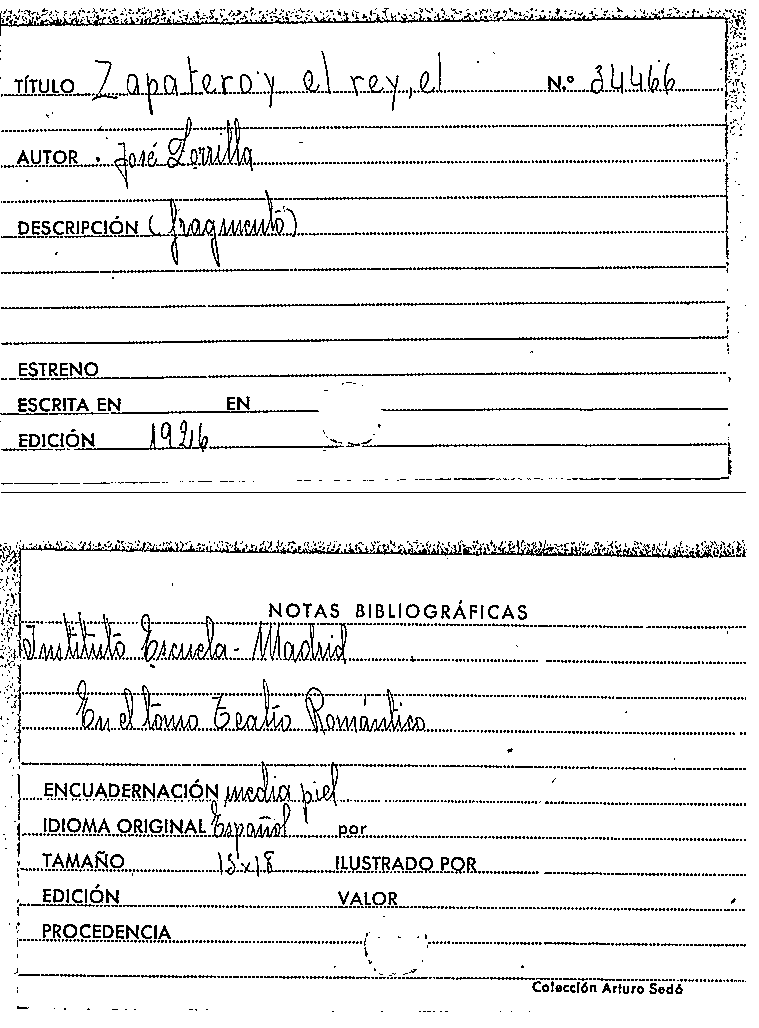 TÍTULO Zapatero y el rey, el N.º 34466
AUTOR . José Zorrilla
DESCRIPCIÓN (fragmento)
ESTRENO
ESCRITA EN EN
EDICIÓN 1926
NOTAS BIBLIOGRÁFICAS
Instituto Escuela - Madrid
En el tomo Teatro Romántico
ENCUADERNACIÓN media piel
IDIOMA ORIGINAL Español por
TAMAÑO 13x18 ILUSTRADO POR
EDICIÓN VALOR
PROCEDENCIA
Colección Arturo Sedó